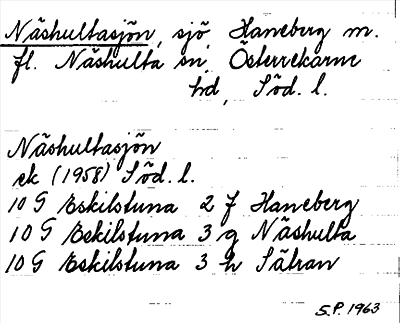 Näshultasjön, sjö, Haneberg m.
fl. Näshulta sn, Österrekarne
hd, Söd. l.
Näshultasjön
ek (1958) Söd. l.
10 G Eskilstuna 2 f Haneberg
10 G Eskilstuna 3 g Näshulta
10 G Eskilstuna 3 h Sätran
S.P. 1963